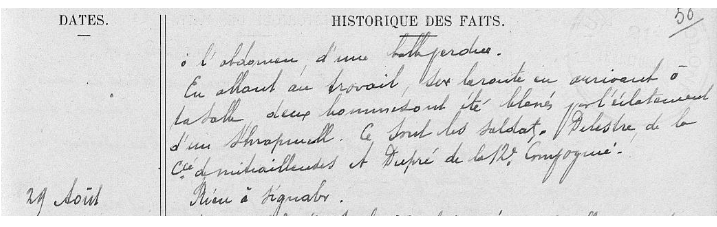 DATES. HISTORIQUE DES FAITS. 50
à l'abdomen, d'une balle perdue.
En allant au travail, sur la route en arrivant à
la Salle deux hommes ont été blessés par l'éclatement
d'un Shrapnell. Ce sont les soldats Delestre, de la
Cie de mitrailleuses et Dupré de la 12e Compagnie.
29 Août Rien à signaler.